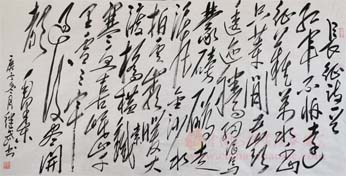 长征
红军不怕远
征难万水千山
只等闲五岭
逶迤腾细浪乌
蒙磅礴走
泥丸金沙水
拍云崖暖大
渡桥横铁索
寒更喜岷山千
里雪三军
过后尽开
颜